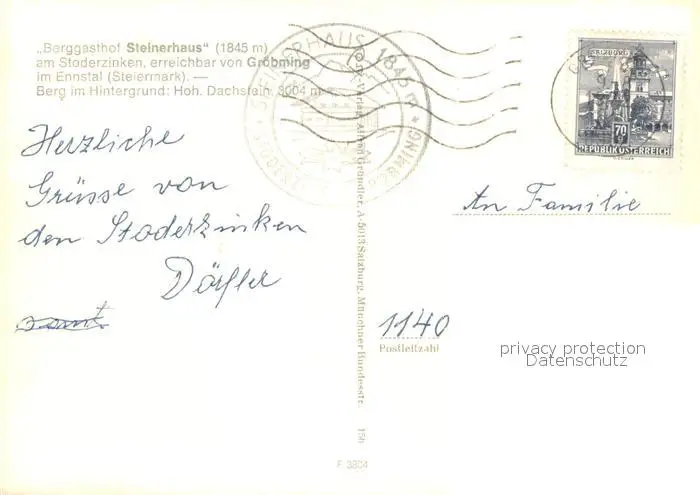 „Berggasthof Steinerhaus“ (1845 m)
am Stoderzinken, erreichbar von Gröbming
im Ennstal (Steiermark). —
Berg im Hintergrund: Hoh. Dachstein, 3004 m
Herzliche
Grüsse von
den Stoderzinken
Dörfler
samt
STEINERHAUS 1845 m
GRÖBMING
Verlag Alfred Gründler, A-5013 Salzburg, Münchner Bundesstr. 156
SALZBURG
70
g
REPUBLIK ÖSTERREICH
An Familie
1140
Postleitzahl
privacy protection
Datenschutz
F 3804